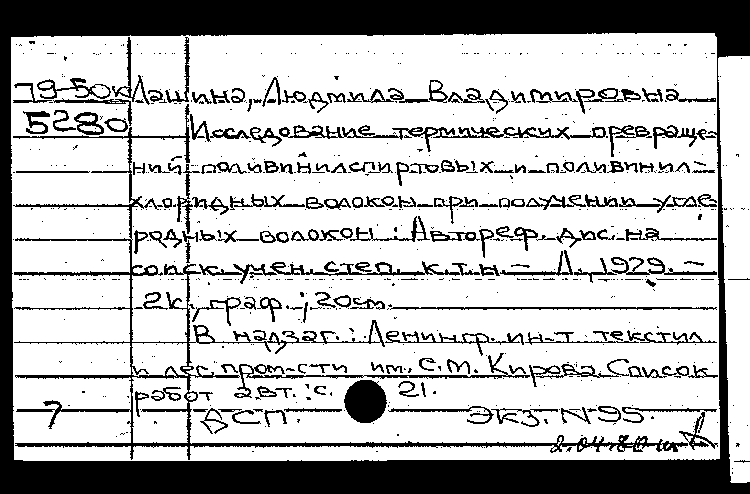 79-50к Лашина, Людмила Владимировна
5280 Исследование термических превраще-
ний поливинилспиртовых и поливинил-
хлоридных волокон при получении угле
родных волокон : Автореф. дис. на
соиск. учен. степ. к.т.н. – Л., 1979. –
2к., граф. ; 20 cm.
В надзаг. : Ленингр. ин-т текстил
и лег. пром-сти им. С.М. Кирова. Список
работ авт. : с. 21.
7 ДСП. Экз. N 95.
2.04.80